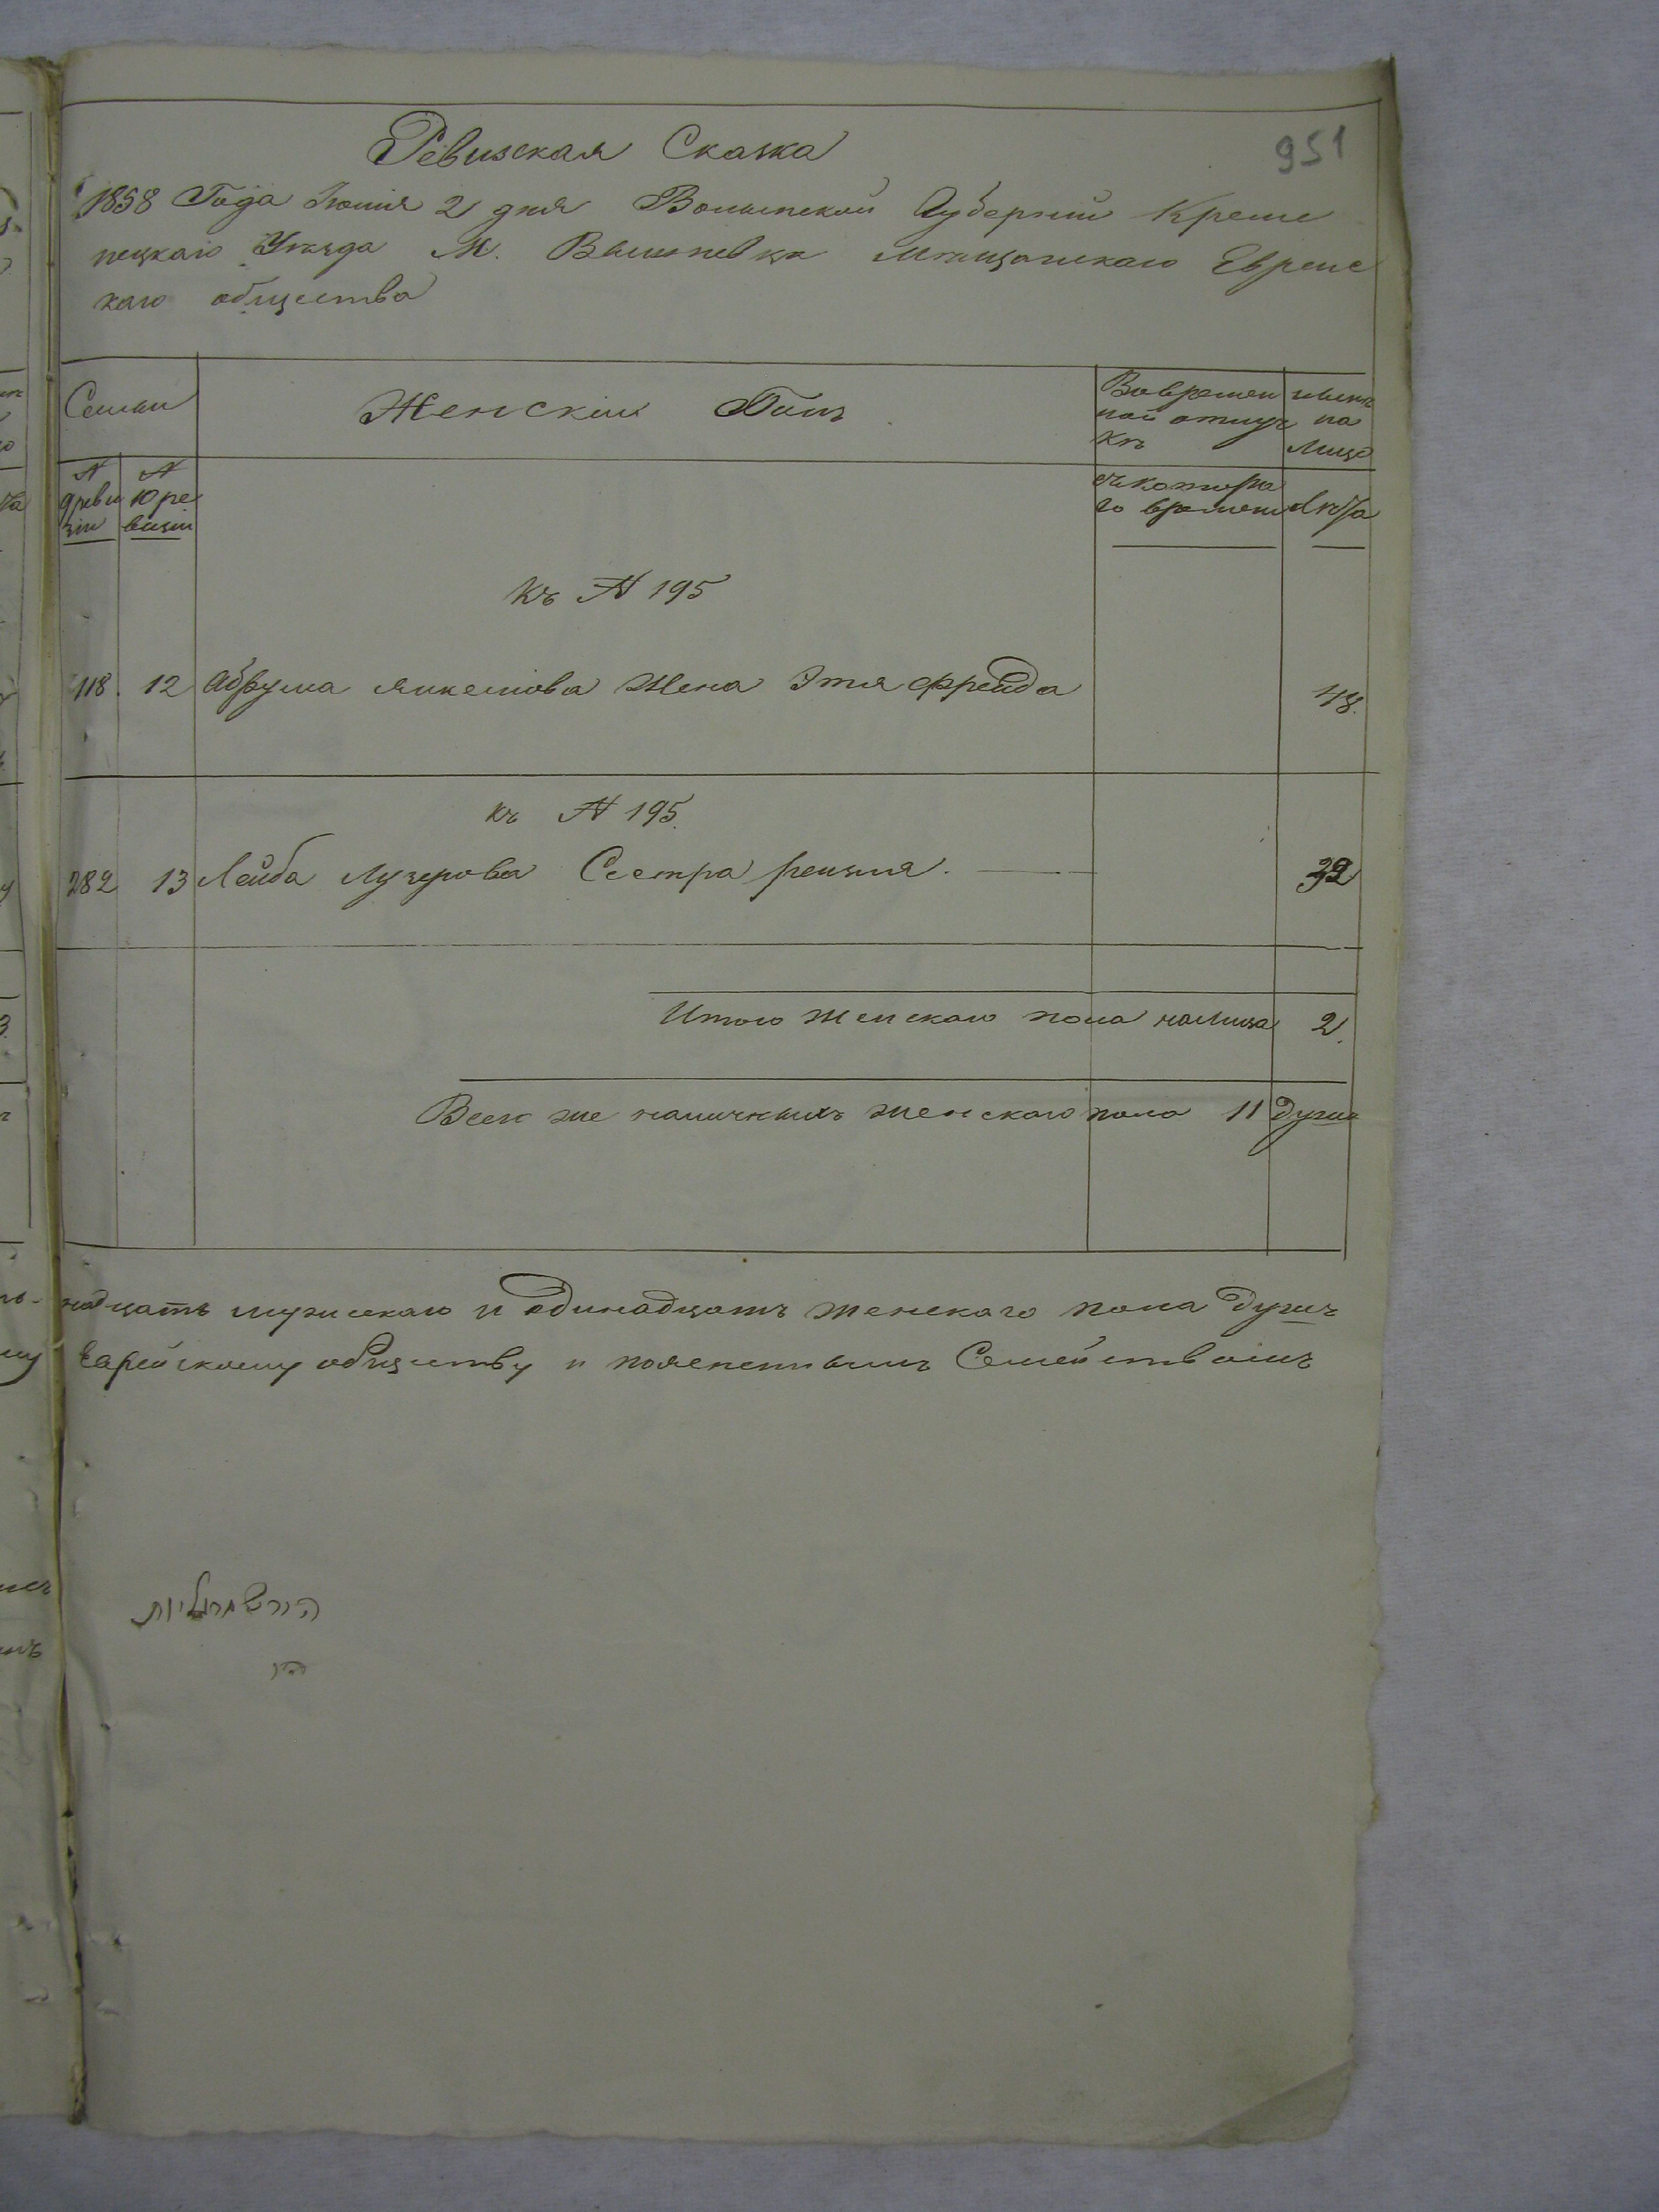 951
Ревизская Сказка
1858 Года Июня 2 дня Волынской Губернии Креме
нецкаго Уѣзда М. Вышневца мѣщанскаго Еврейс
каго общества
Семьи
Женскій Полъ
Во времен
ной отлуч
кѣ
нынѣ
на
лицо
№
9 реви
зіи
№
10 ре
визіи
съ котора
го времени
Лѣта
къ № 195
118. 12 Абрума Янкелова Жена Этя Фрейда 48.
къ № 195.
282 13 Лейба Лузерова Сестра рейзля. 32
Итого женскаго пола налицо 2.
Всех же наличныхъ женскаго пола 11 душъ
надцать мужскаго и одинадцать женскаго пола душъ
Еврейскому обществу и поясненнымъ Семействамъ
הירש מרגליות